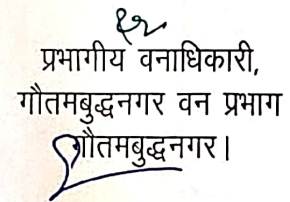 प्रभागीय वनाधिकारी,
गौतमबुद्धनगर वन प्रभाग
गौतमबुद्धनगर।